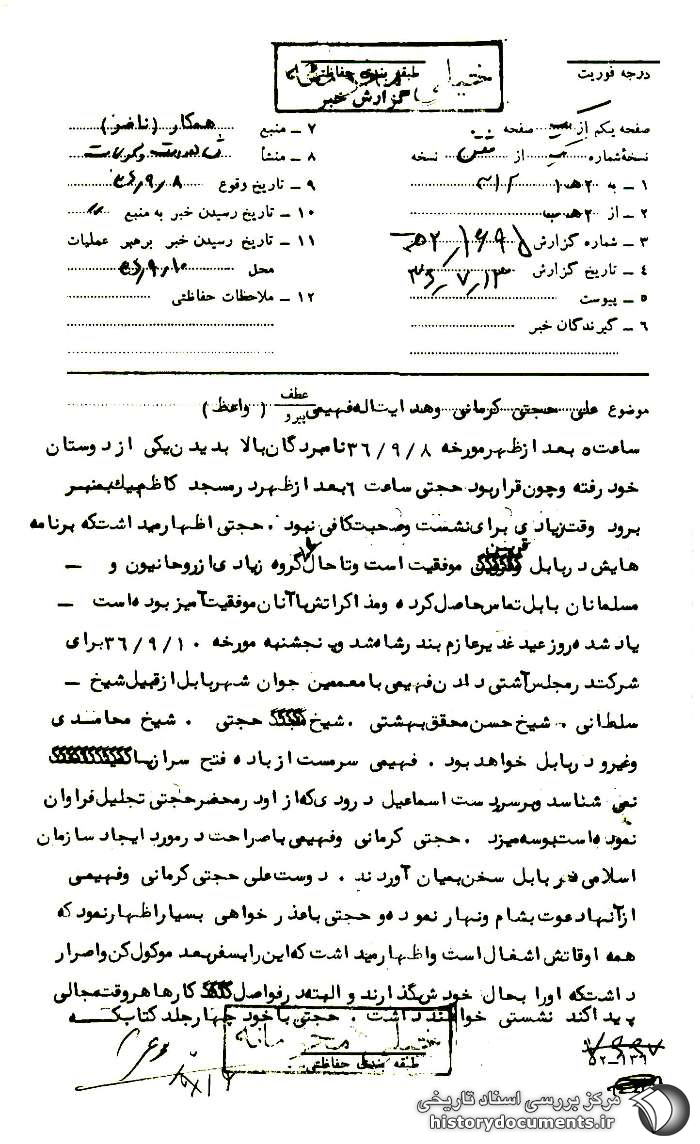 درجه فوریت
طبقه بندی حفاظتی
گزارش خبر
صفحه یکم از صفحه
نسخه شماره از نسخه
۱ ـ به ۲۰ هـ
۲ ـ از ۲۰ هـ
۳ ـ شماره گزارش
۴ ـ تاریخ گزارش
۵ ـ پیوست
۶ ـ گیرندگان خبر
۷ ـ منبع همکار (ناضر)
۸ ـ منشأ
۹ ـ تاریخ وقوع ۳۶٫۹٫۸
۱۰ ـ تاریخ رسیدن خبر به منبع
۱۱ ـ تاریخ رسیدن خبر برهبر عملیات
محل ۳۶٫۹٫۱۰
۱۲ ـ ملاحظات حفاظتی
موضوع علی حجتی کرمانی وهدایت اله فهیمی عطف پیرو (واعظ)
ساعت ۵ بعد از ظهر مورخه ۳۶/۹/۸ نامبردگان بالا بدیدن یکی از دوستان
خود رفته وچون قرار بود حجتی ساعت ۶ بعد از ظهر در مسجد کاظم بیک بمنبر
برود وقت زیادی برای نشست وصحبت کافی نبود . حجتی اظهار میداشت که برنامه
هایش در بابل قرین موفقیت است وتا حال گروه زیادی از روحانیون و ـ
مسلمانان بابل تماس حاصل کرده ومذاکراتش با آنان موفقیت آمیز بوده است ـ
یاد شده روز عید غدیر عازم بندر شاه شد وپنجشنبه مورخه ۳۶/۹/۱۰ برای
شرکت در مجلس آشتی دادن فهیمی با معممین جوان شهر بابل از قبیل شیخ ـ
سلطانی . شیخ حسن محقق بهشتی . شیخ حجتی . شیخ محامدی
وغیره در بابل خواهد بود . فهیمی سرمست از باده فتح سر از پا
نمی شناسد وبر سر دست اسماعیل درودی که از او در محضر حجتی تجلیل فراوان
نموده است بوسه میزد . حجتی کرمانی وفهیمی با صراحت در مورد ایجاد سازمان
اسلامی در بابل سخن بمیان آوردند . دوست علی حجتی کرمانی وفهیمی
از آنها دعوت بشام ونهار نموده و حجتی با عذر خواهی بسیار اظهار نمود که
همه اوقاتش اشغال است واظهار میداشت که این را بسفر بعد موکول کن واصرار
داشت که او را بحال خودش گذارند و البته در فواصل کارها هر وقت مجالی
پیدا کند نشستی خواهند داشت . حجتی با خود چهار جلد کتاب که
طبقه بندی حفاظتی
۵۲-۱۳۶
مرکز بررسی اسناد تاریخی
historydocuments.ir